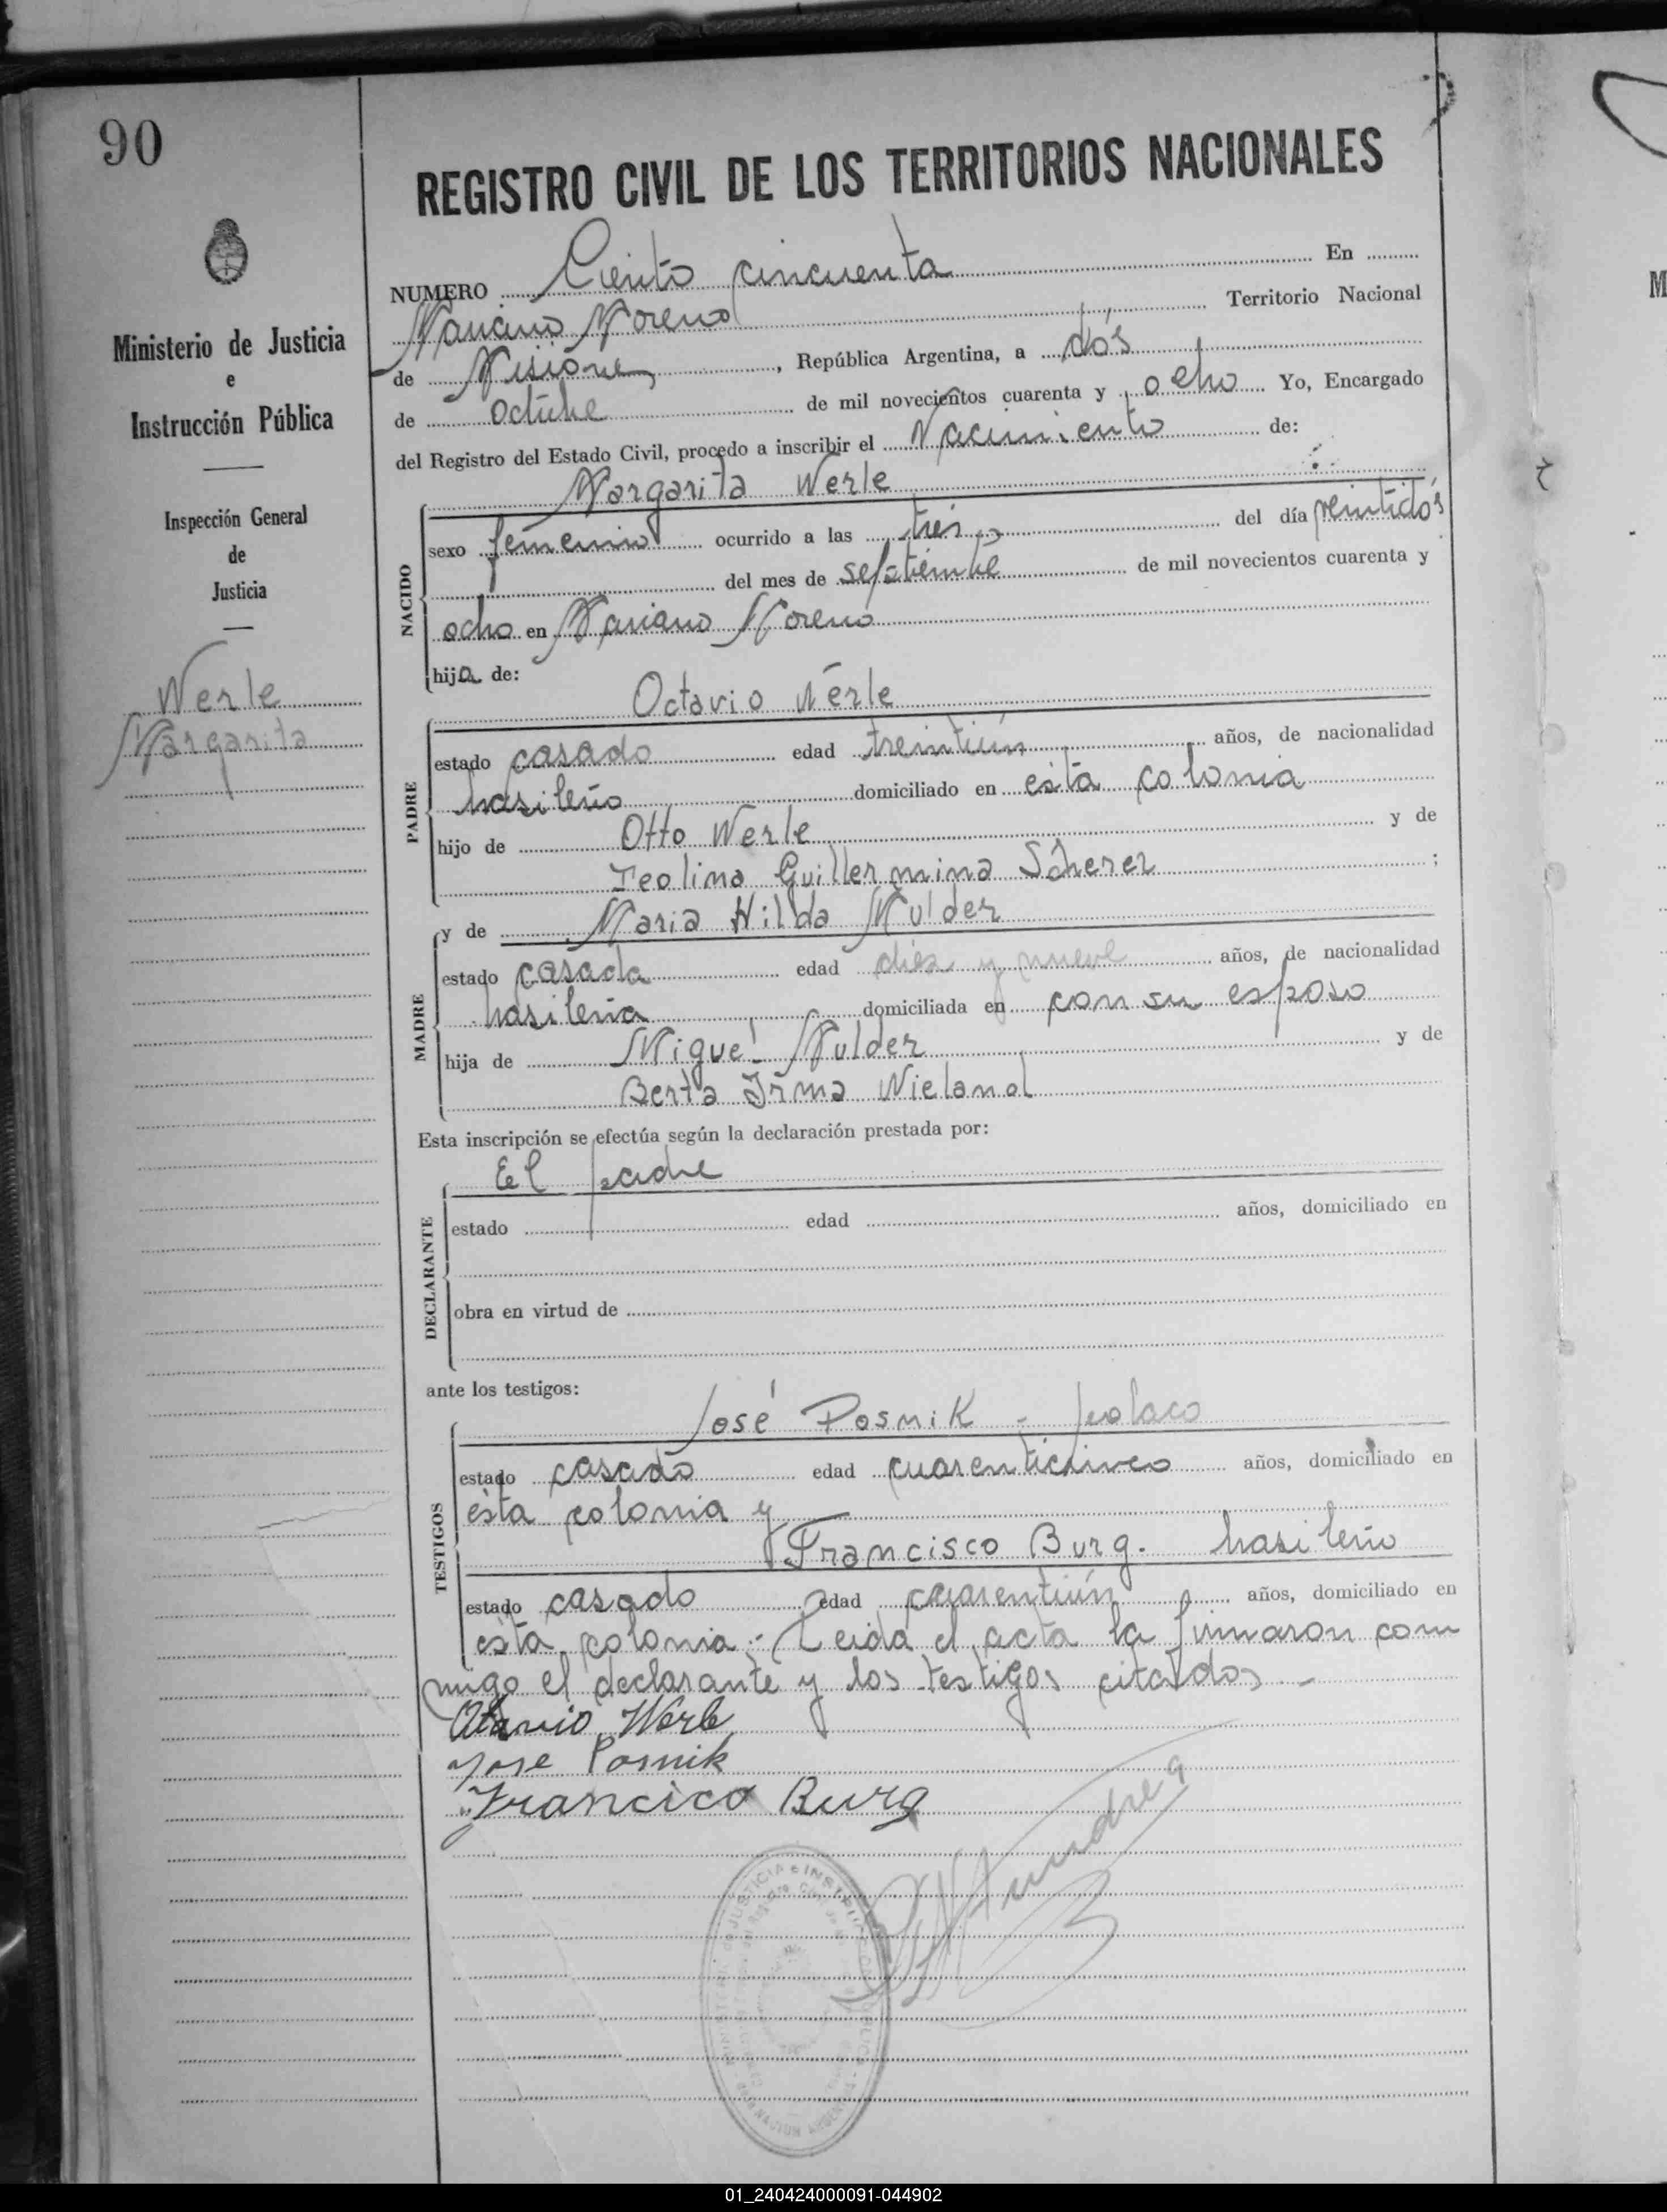 90
REGISTRO CIVIL DE LOS TERRITORIOS NACIONALES
NUMERO Ciento cincuenta En
Mariano Moreno Territorio Nacional
de Misiones, República Argentina, a dós
de octubre de mil novecientos cuarenta y ocho Yo, Encargado
del Registro del Estado Civil, procedo a inscribir el Nacimiento de:
Margarita Werle
Ministerio de Justicia
e
Instrucción Pública
Inspección General
de
Justicia
Werle
Margarita
NACIDO
sexo femenino ocurrido a las tres del día veintidós
del mes de septiembre de mil novecientos cuarenta y
ocho en Mariano Moreno
hija de:
Octavio Werle
PADRE
estado casado edad treintiún años, de nacionalidad
brasileño domiciliado en esta colonia
hijo de Otto Werle y de
Teolina Guillermina Scherer ;
y de Maria Hilda Mulder
MADRE
estado casada edad diez y nueve años, de nacionalidad
brasileña domiciliada en con su esposo
hija de Miguel Mulder y de
Berta Irma Wieland
Esta inscripción se efectúa según la declaración prestada por:
El padre
DECLARANTE
estado edad años, domiciliado en
obra en virtud de
ante los testigos:
José Posnik - polaco
TESTIGOS
estado casado edad cuarenticinco años, domiciliado en
esta colonia y
Francisco Burg. brasileño
estado casado edad cuarentiún años, domiciliado en
esta colonia.- Leida el acta la firmaron con
migo el declarante y los testigos citados.-
Otavio Werle
Jose Posnik
Francisco Burg
01_240424000091-044902